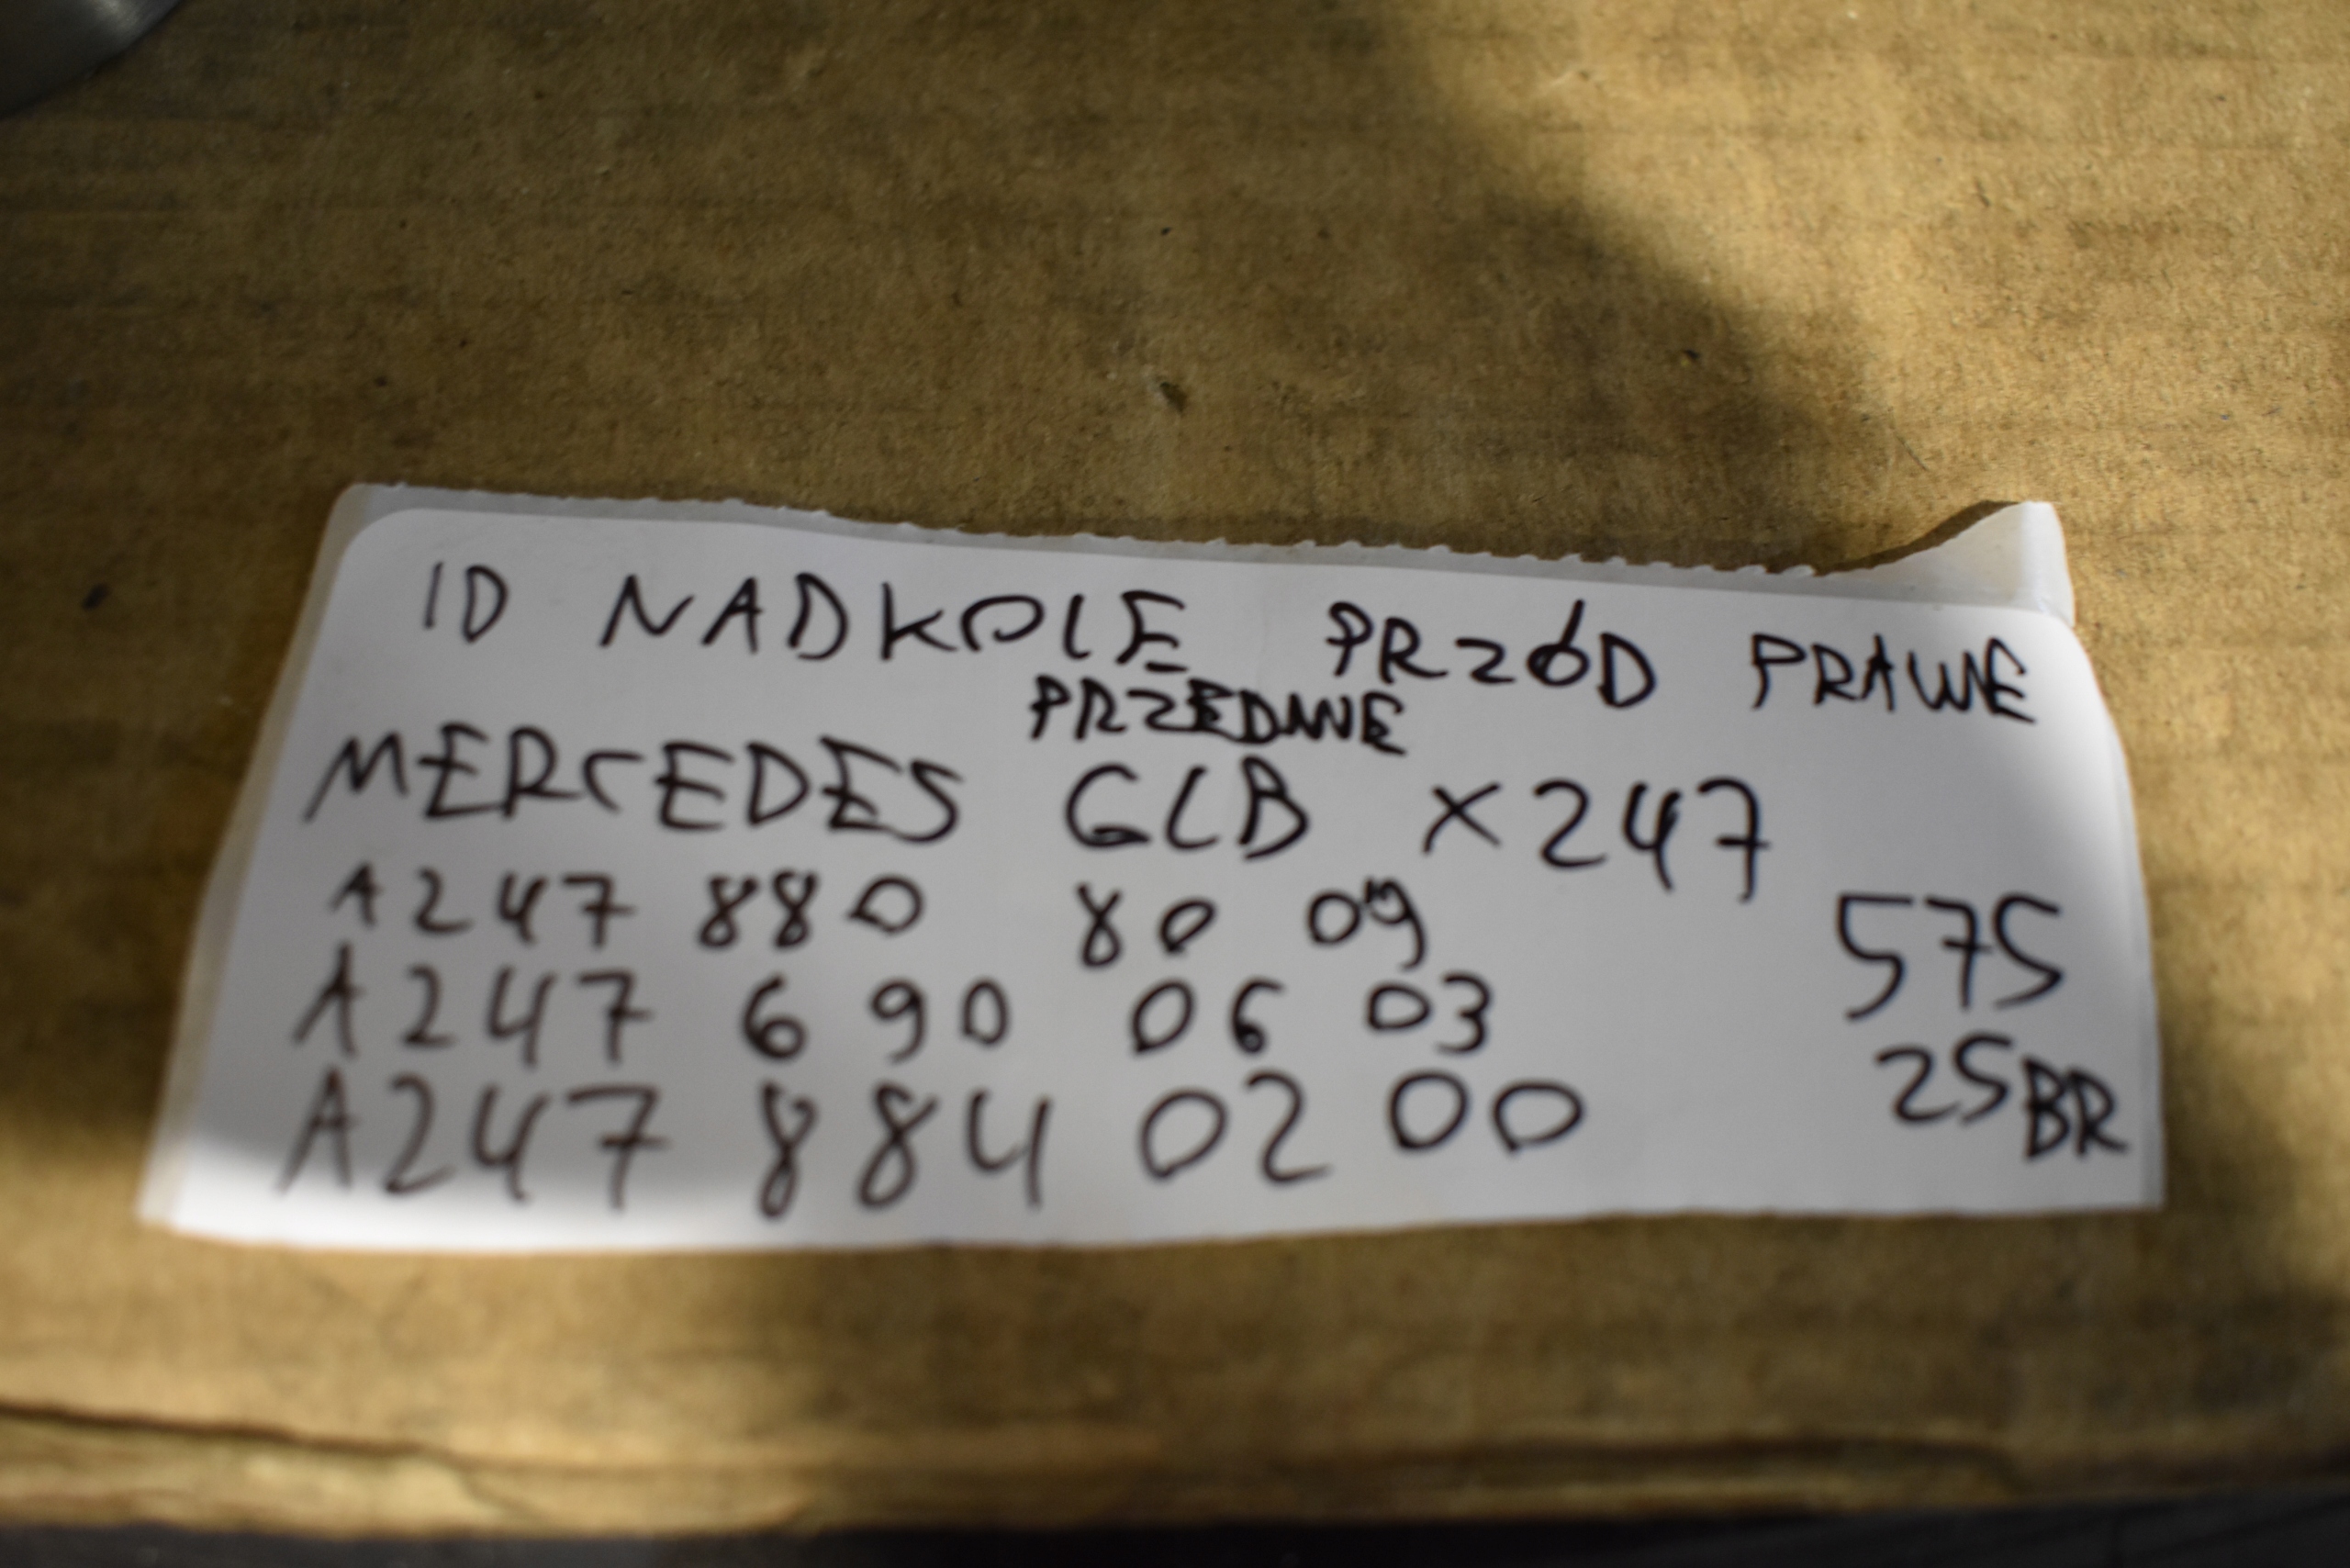 ID NADKOLE PRZÓD PRAWE
PRZEDNIE
MERCEDES GLB X247
A247 880 80 09
A247 690 06 03
A247 884 02 00
575
25BR